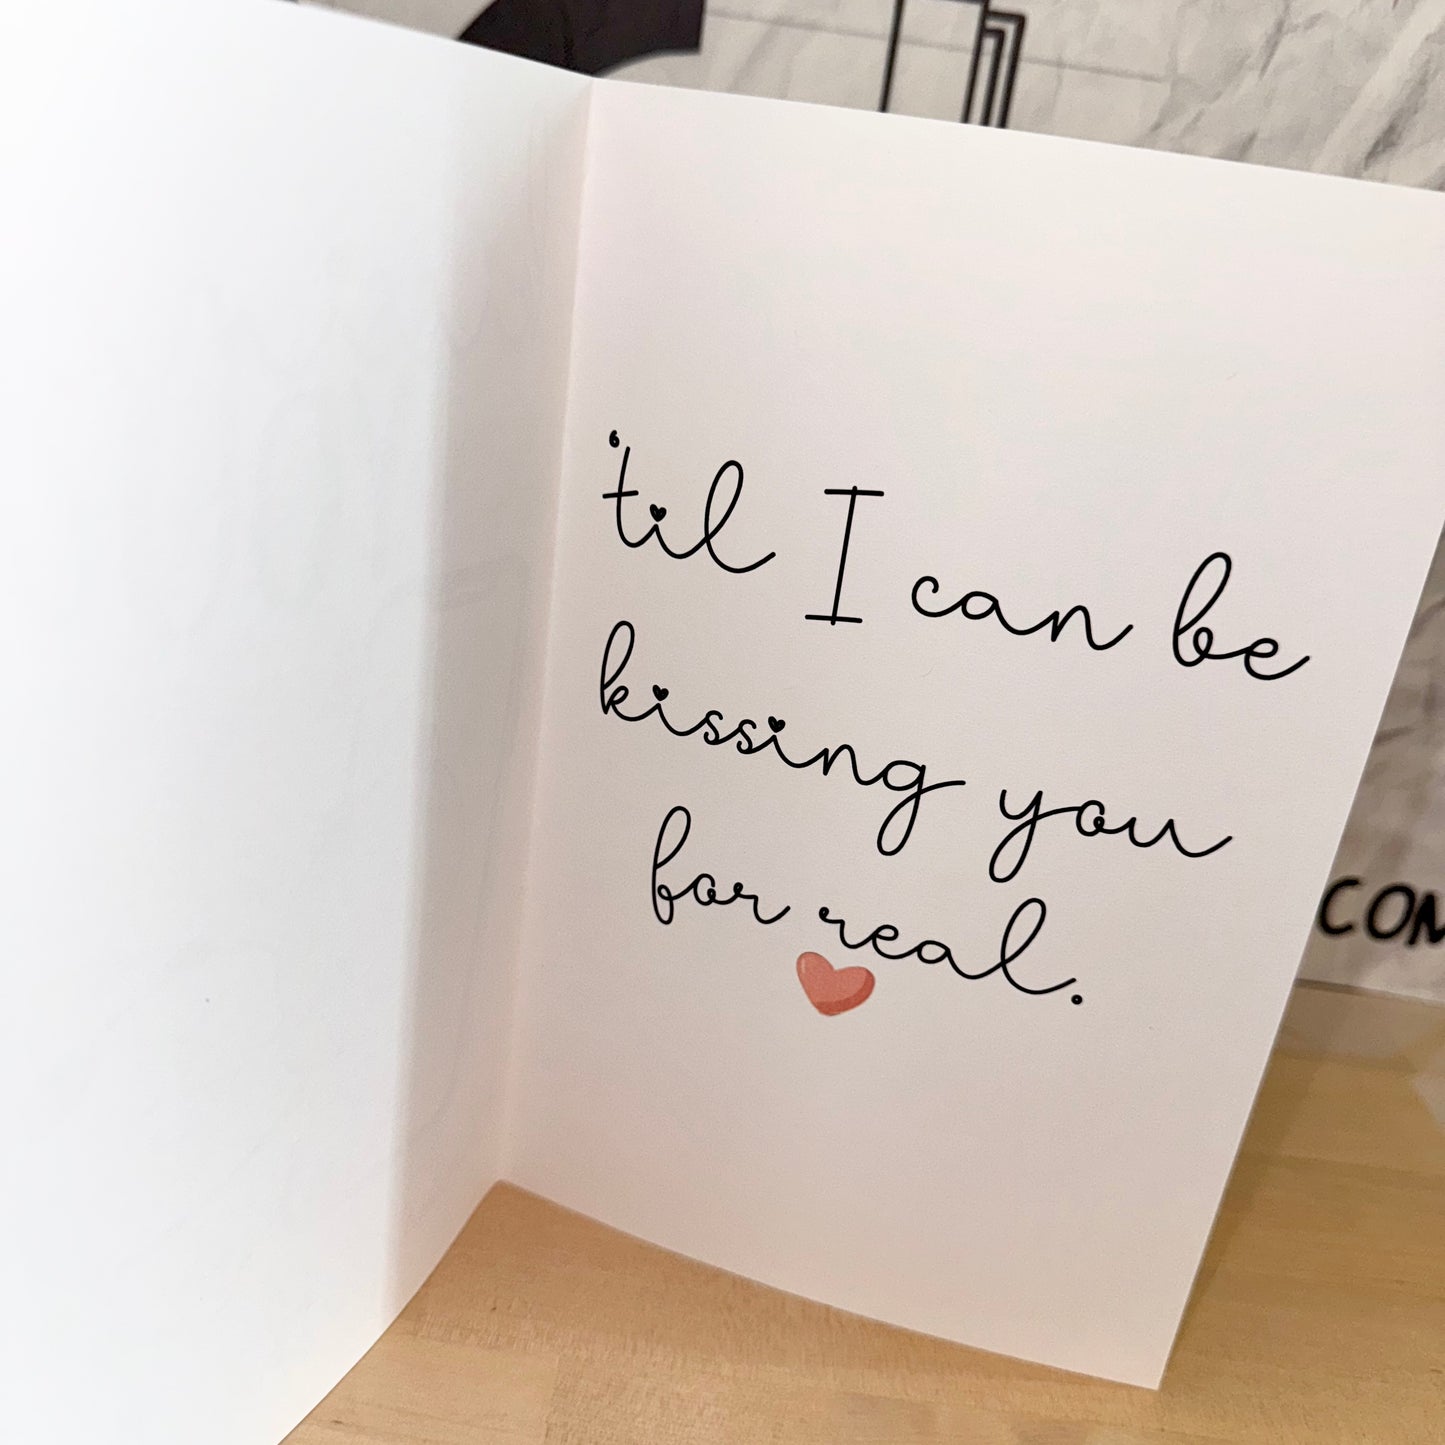 ‘til I can be
kissing you
for real.
CON